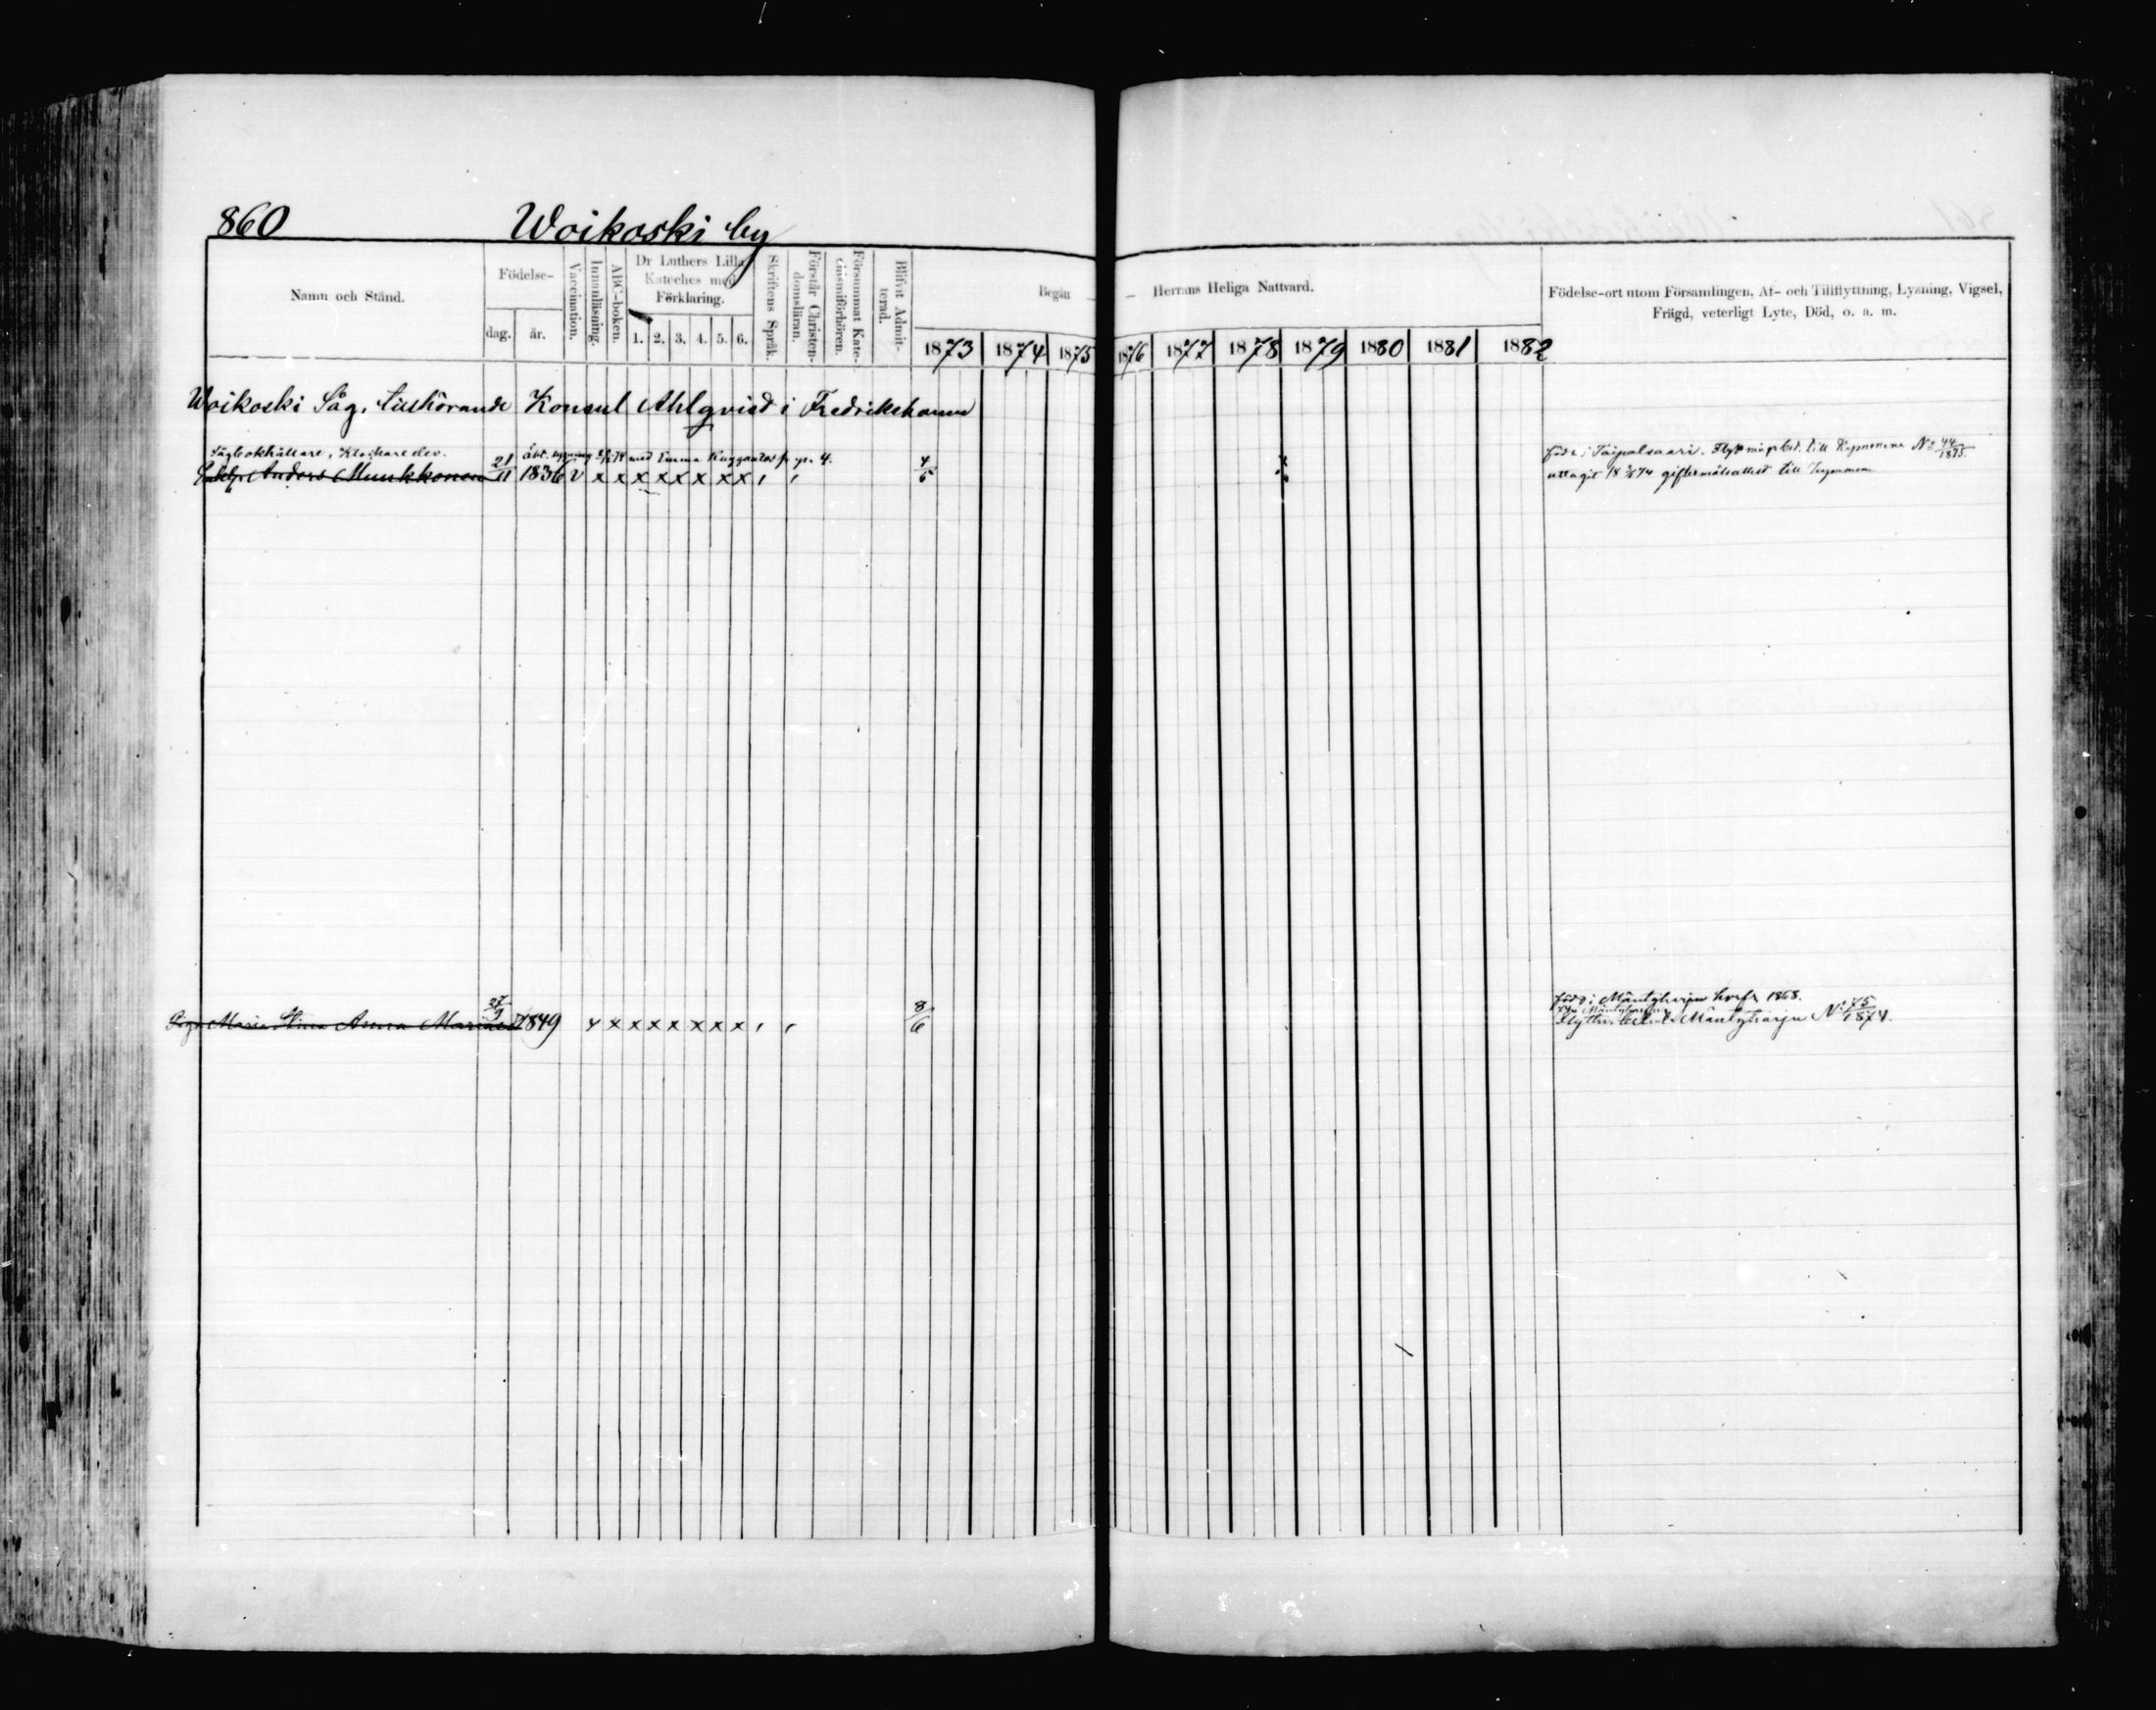 860 Woikoski by
Namn och Stånd.
Födelse-
dag. år.
Vaccination.
Innanläsning.
ABC-boken.
Dr Luthers Lilla
Kateches med
Förklaring.
1. 2. 3. 4. 5. 6.
Skriftens Språk.
Förstår Christen-
domsläran.
Försummat Kate-
chismiförhören.
Blifvit Admit-
terad.
Begått — — Herrans Heliga Nattvard.
1873 1874 1875 1876 1877 1878 1879 1880 1881 1882
Födelse-ort utom Församlingen, Af- och Tillflyttning, Lysning, Vigsel,
Frägd, veterligt Lyte, Död, o. a. m.
Woikoski Såg, tillhörande Konsul Ahlqvist i Fredrikshamn
Sågbokhållare, Klockare elev.
med Emma
Anders Munkkonen 21/11 1836 v x x x x x x x x
född i Taipalsaari. till No 44/1873.
till
Maria Stina 27/9 1849 x x x x x x x x 8/6
född i Mäntyharju 1868.
Mäntyharju No 75/1874.